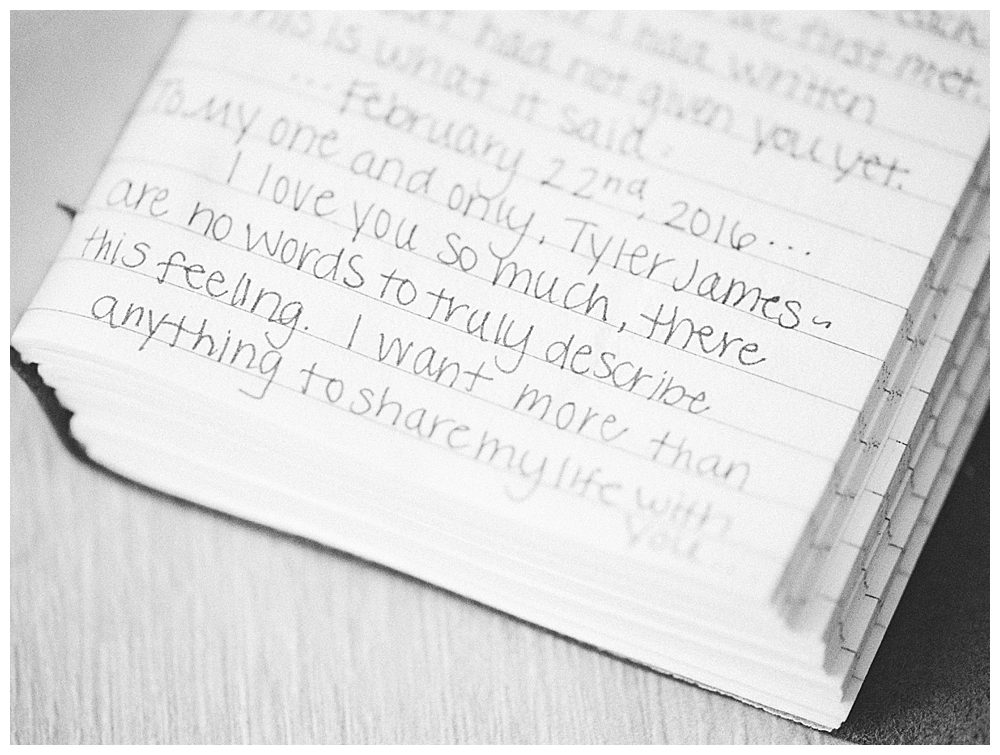 each
we first met.
I had written
had not given you yet.
This is what it said:
...February 22nd, 2016...
To my one and only, Tyler James~
I love you so much, there
are no words to truly describe
this feeling. I want more than
anything to share my life with
you